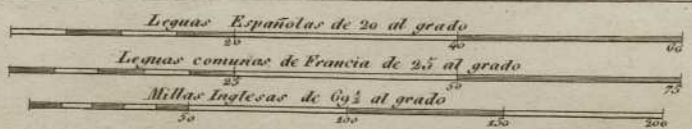 Leguas Españolas de 20 al grado
20 40 60
Leguas comunas de Francia de 25 al grado
25 50 75
Millas Inglesas de 69½ al grado
50 100 150 200